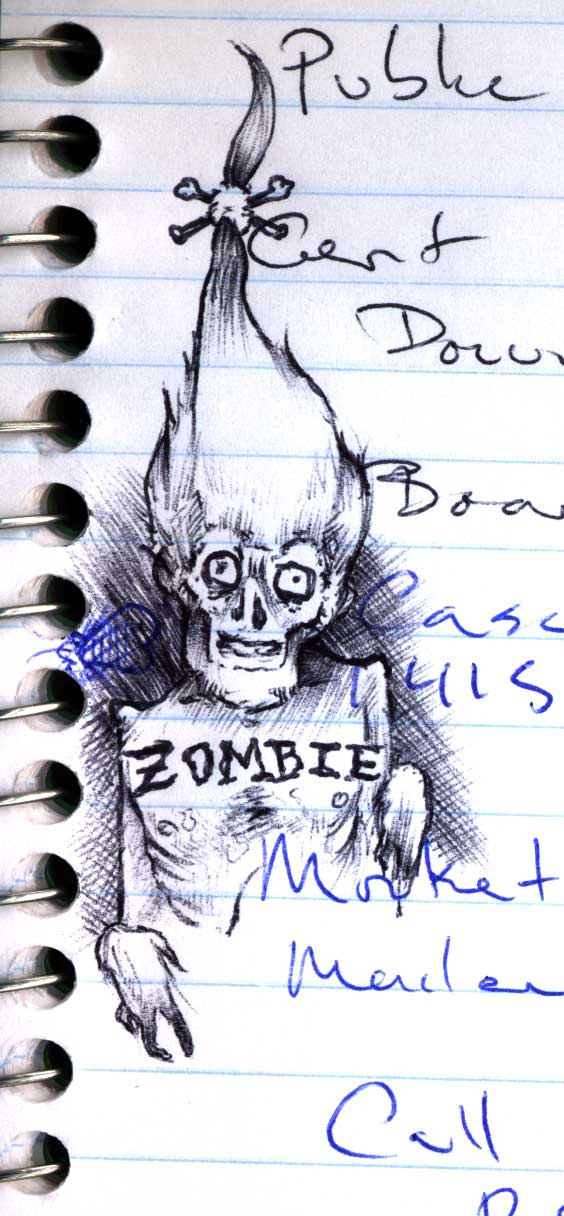 Public
Cent
Down
Boa
Casc
1415
ZOMBIE
Market
Call